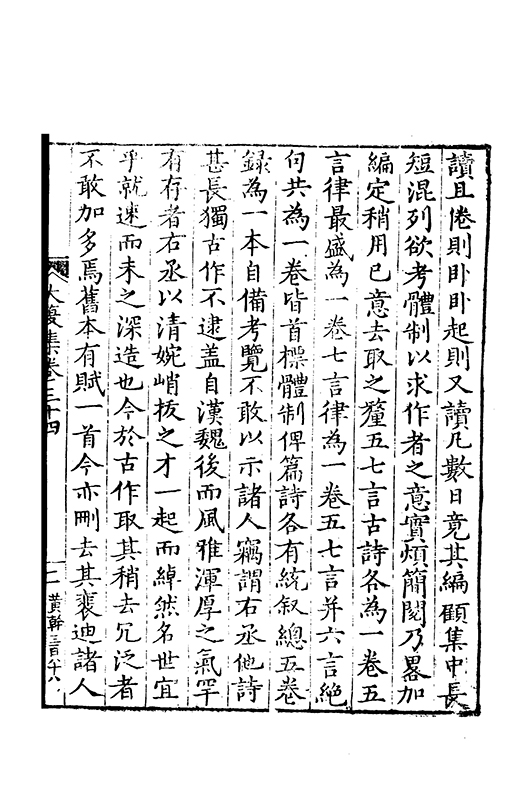 讀且倦則卧卧起則又讀凡數日竟其編顧集中長
短混列欲考體制以求作者之意實煩簡閱乃畧加
編定稍用已意去取之釐五七言古詩各為一卷五
言律最盛為一卷七言律為一卷五七言并六言絕
句共為一卷皆首標體制俾篇詩各有統叙總五卷
錄為一本自備考覽不敢以示諸人竊謂右丞他詩
甚長獨古作不逮盖自漢魏後而風雅渾厚之氣罕
有存者右丞以清婉峭拔之才一起而綽然名世宜
乎就速而未之深造也今於古作取其稍去冗泛者
不敢加多焉舊本有賦一首今亦刪去其裴迪諸人
大復集卷三十四
一
黃幹三百六八